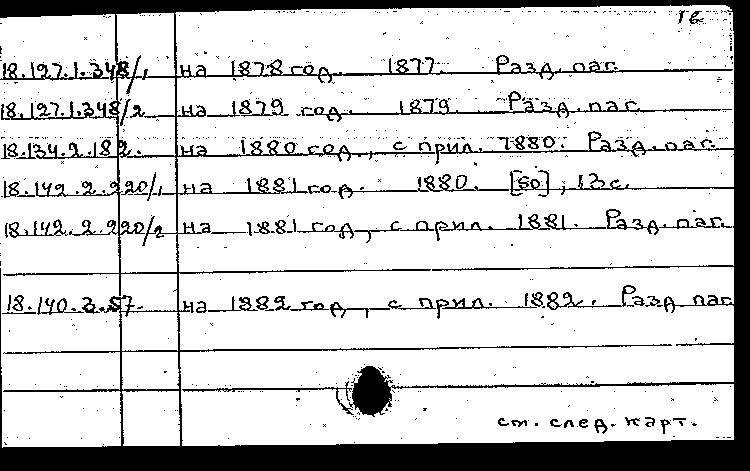 18.127.1.348/1 на 1878 год. 1877. Разд. паг.
18.127.1.348/2 на 1879 год. 1879. Разд. паг.
18.134.2.182. на 1880 год, с прил. 1880. Разд. паг.
18.142.2.220/1 на 1881 год. 1880. [50], 13 с.
18.142.2.220/2 на 1881 год, с прил. 1881. Разд. паг.
18.140.3.57. на 1882 год, с прил. 1882. Разд. паг
см. след. карт.